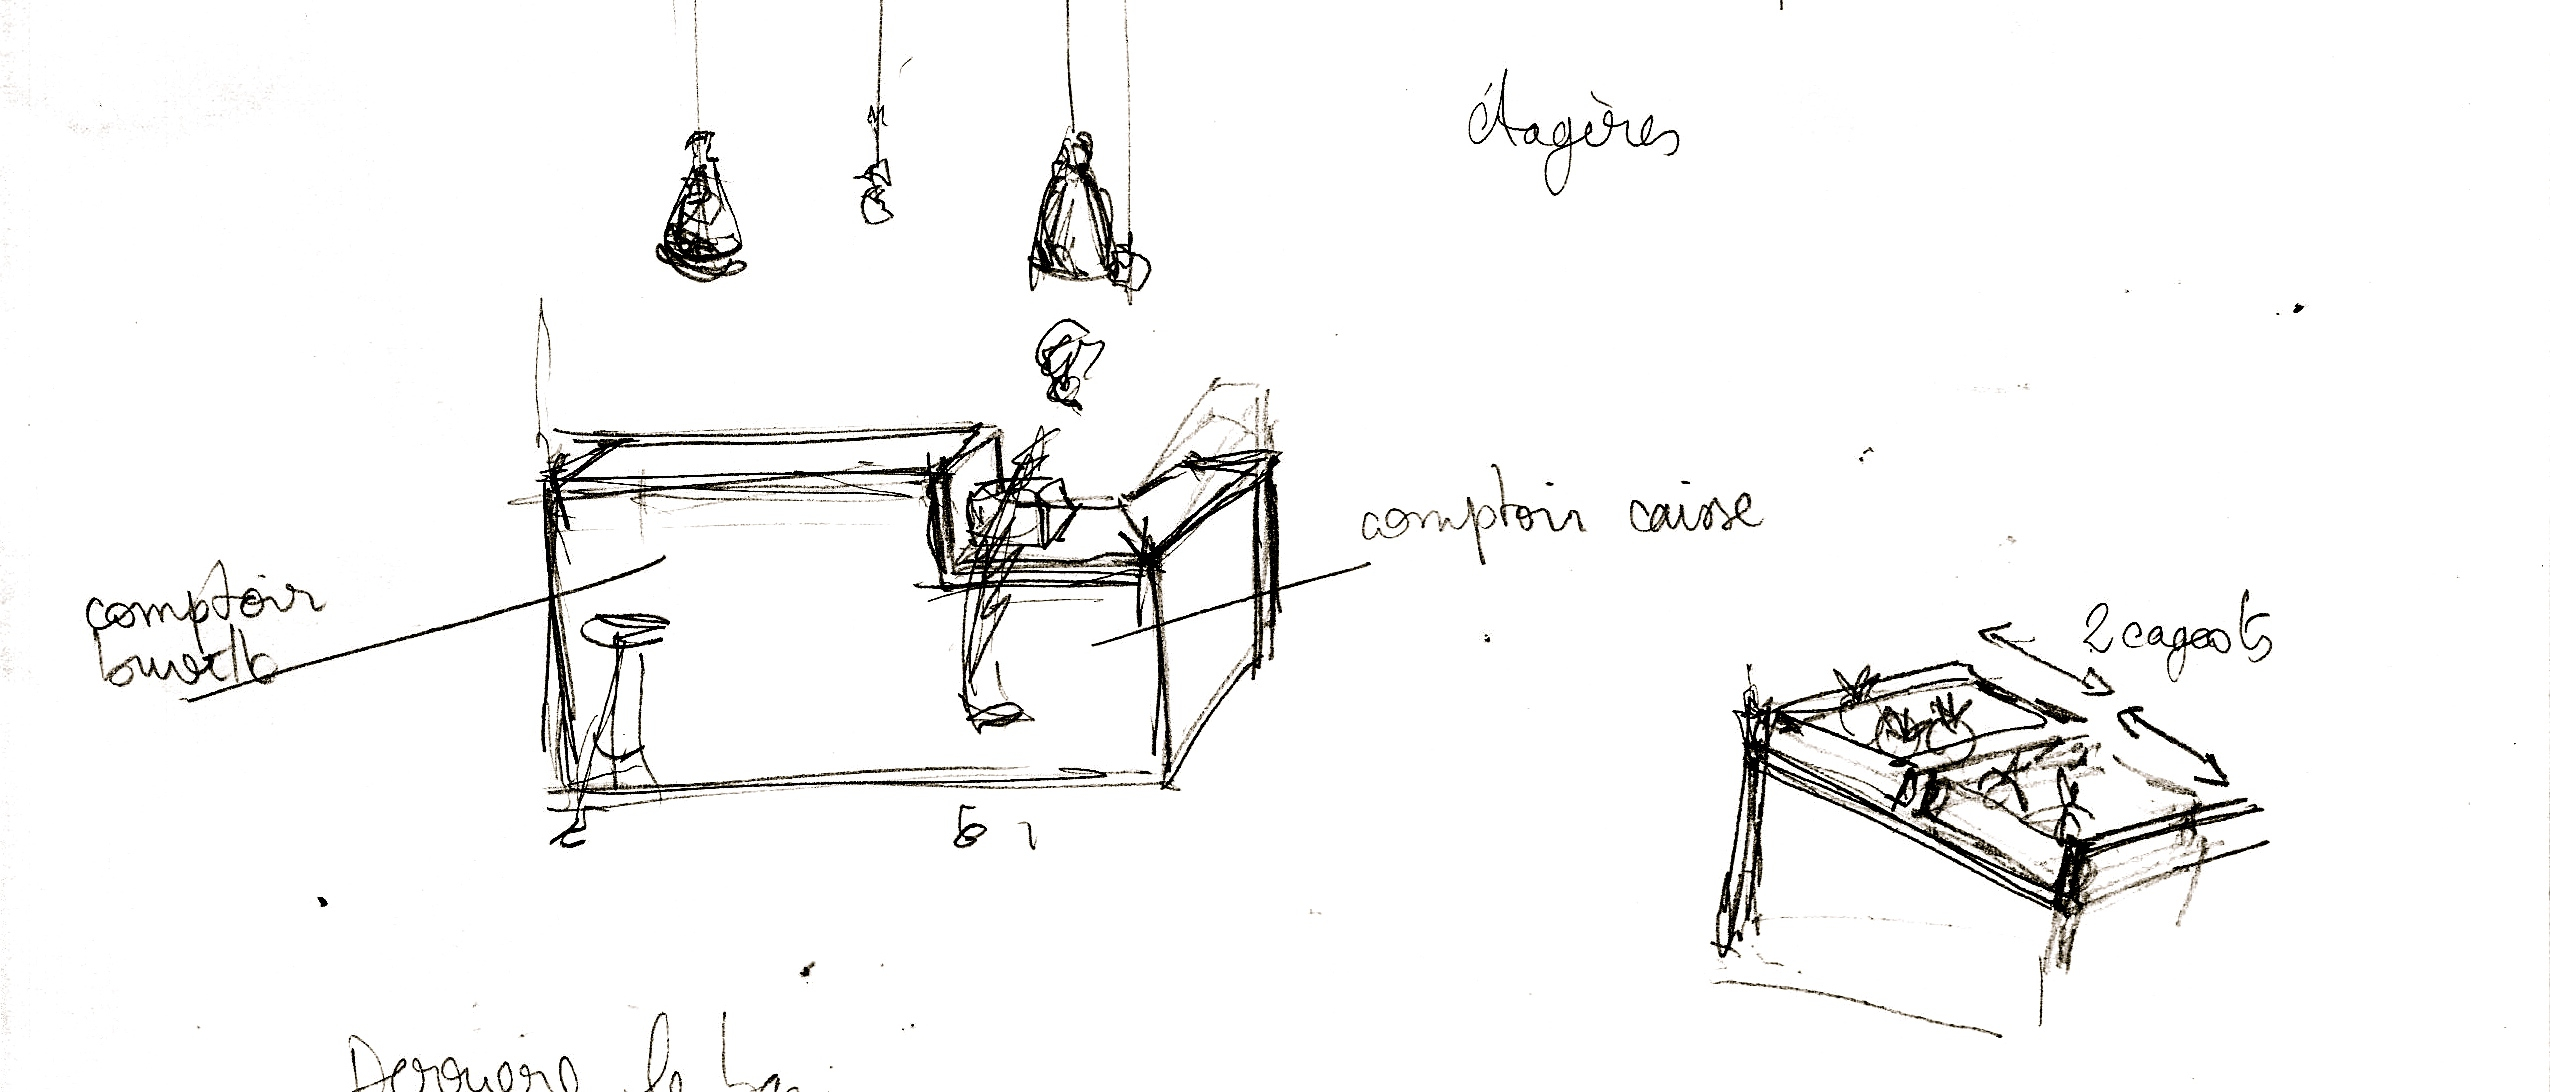 étagères
comptoir caisse
comptoir
buvette
2 cageots
Derrière le ba